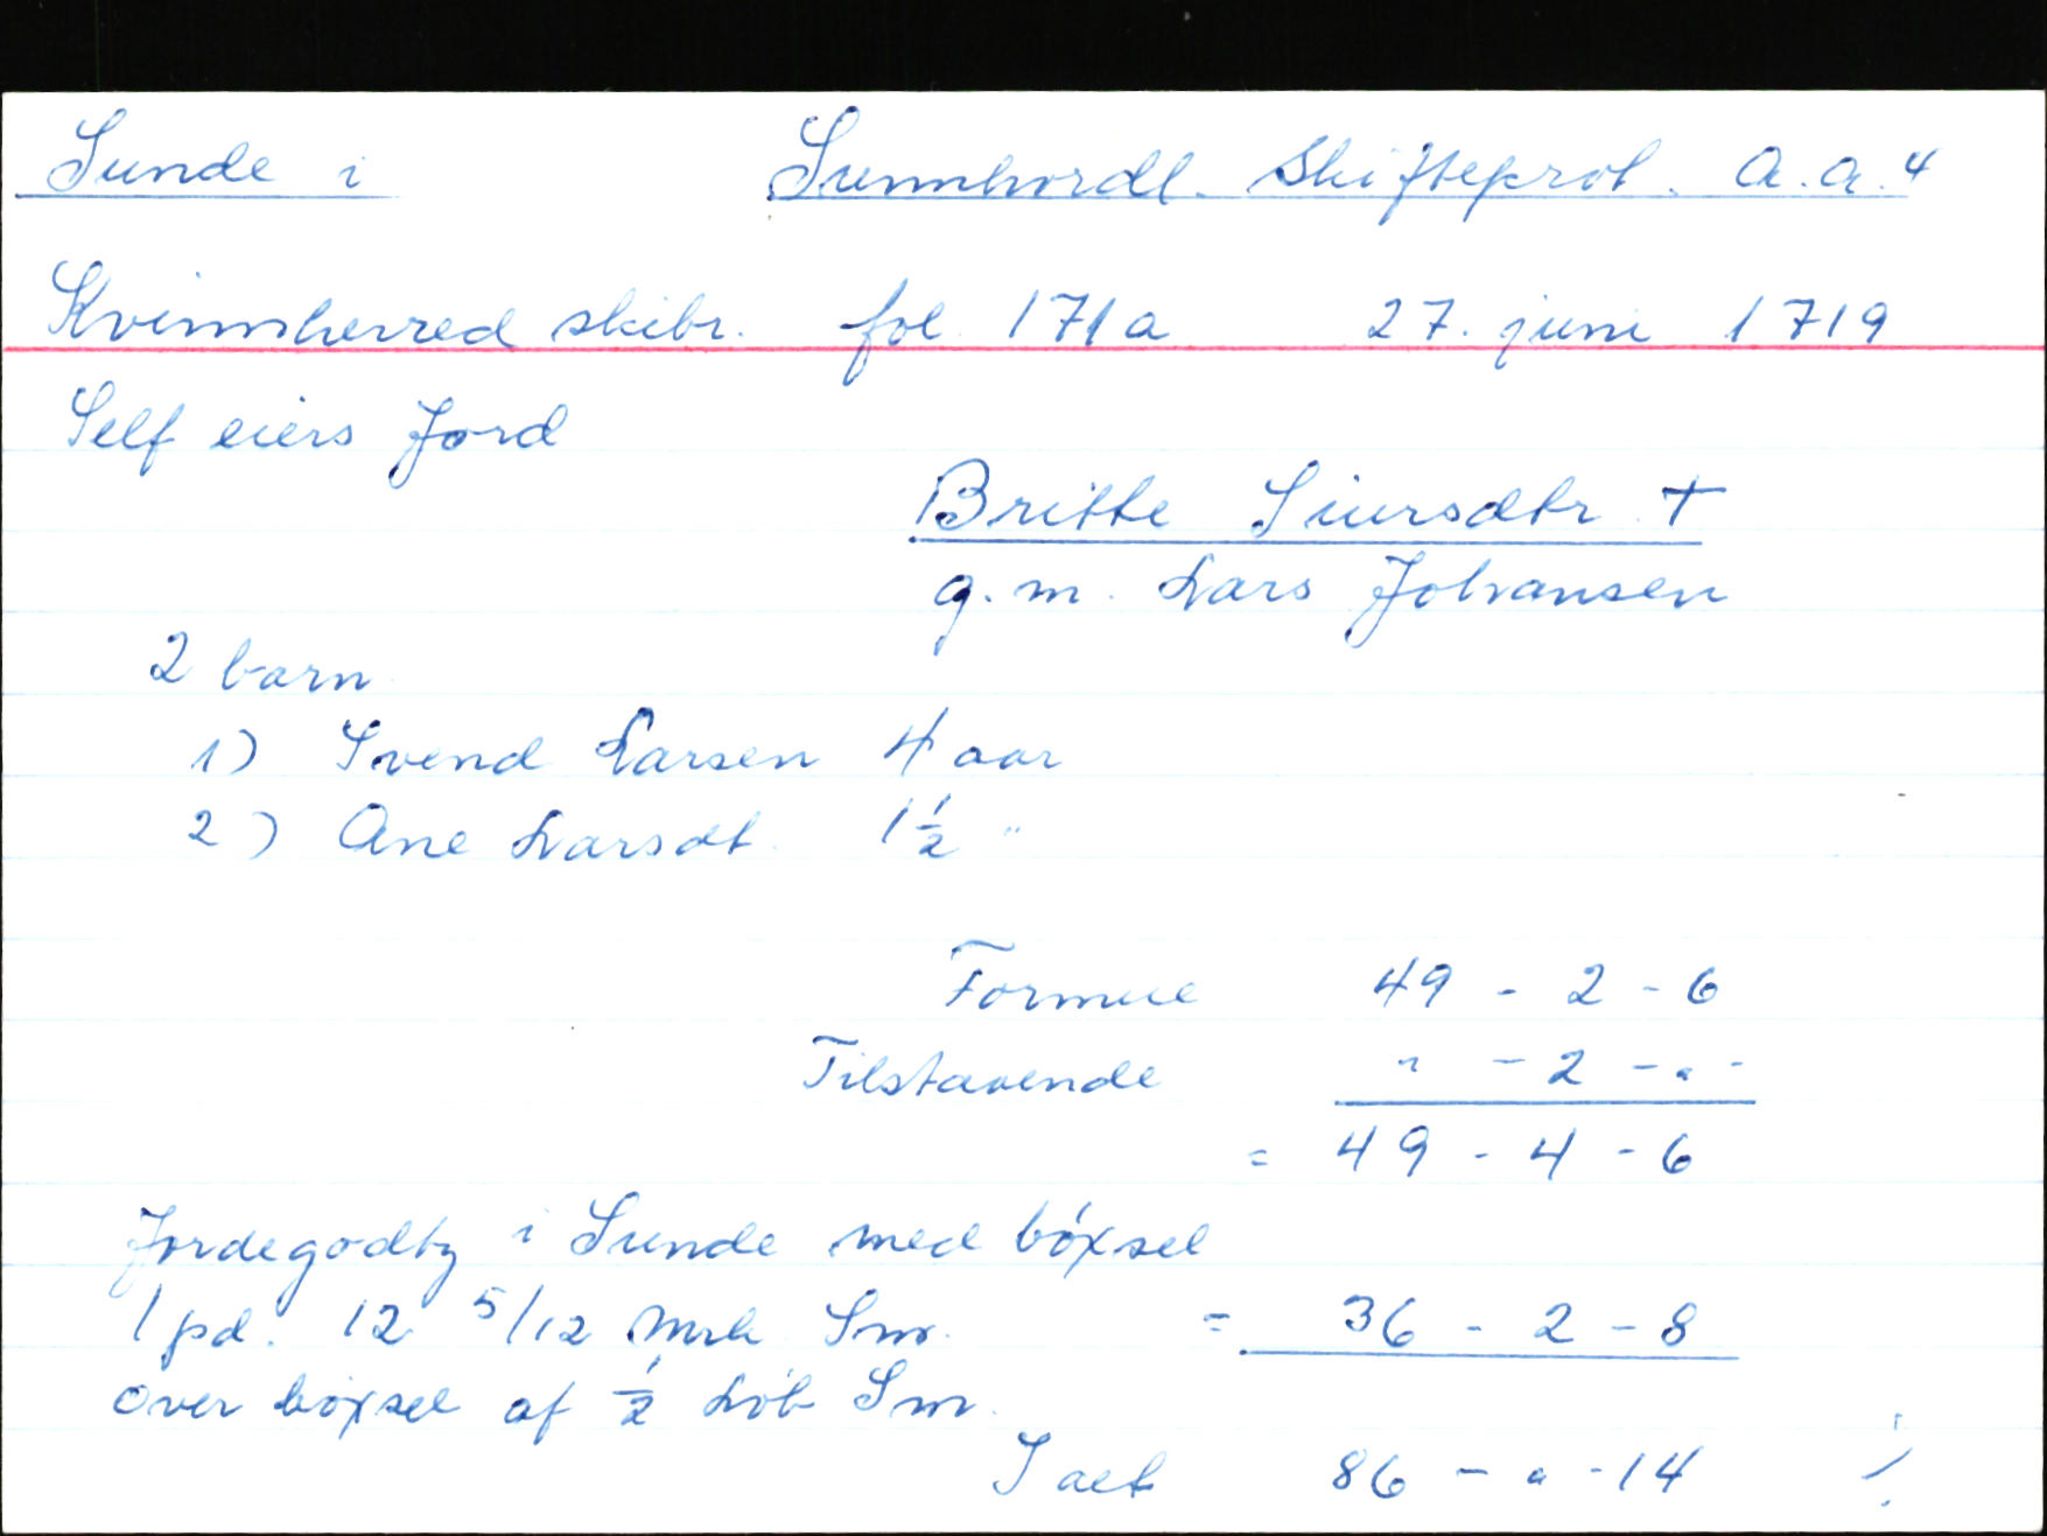 Sunde i Sunnhordl. Skifteprot. A.a.4
Kvinnherred skibr. fol. 171a 27. juni 1719
Self eiers Jord
Britte Siursdtr †
g. m. Lars Johansen
2 barn
1) Svend Larsen 4 aar
2) Ane Larsdt. 1½ "
Formue 49 - 2 - 6
Tilstaaende " - 2 - " -
= 49 - 4 - 6
Jordegodtz i Sunde med böxsel
1 pd. 12 5/12 mrk Sm. = 36 - 2 - 8
over böxsel af ½ Löb Sm.
I alt 86 - " - 14 ./.